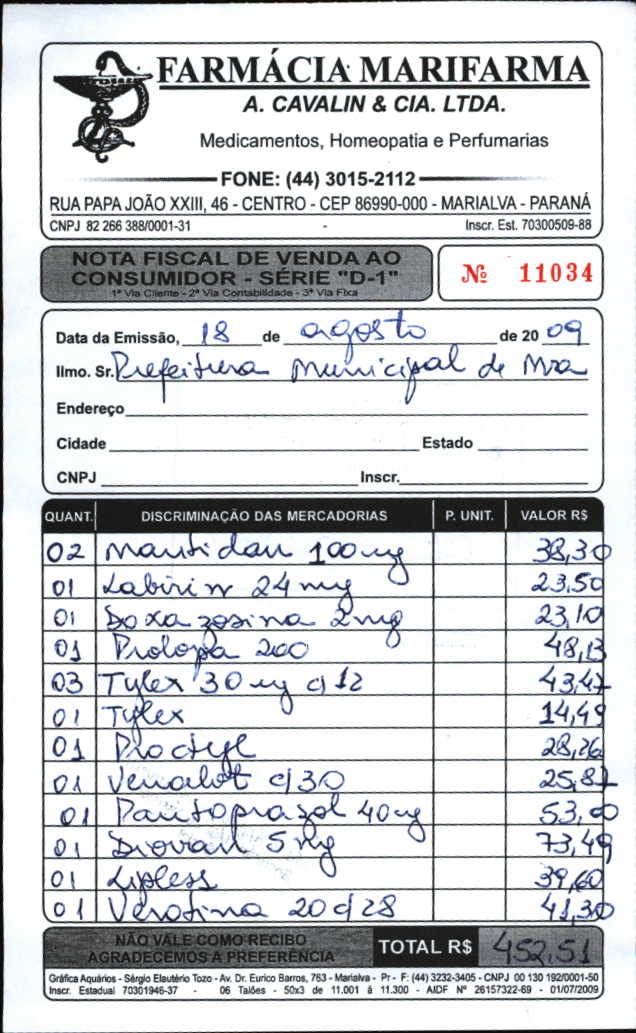 FARMÁCIA MARIFARMA
A. CAVALIN & CIA. LTDA.
Medicamentos, Homeopatia e Perfumarias
FONE: (44) 3015-2112
RUA PAPA JOÃO XXIII, 46 - CENTRO - CEP 86990-000 - MARIALVA - PARANÁ
CNPJ 82 266 388/0001-31 - Inscr. Est. 70300509-88
NOTA FISCAL DE VENDA AO
CONSUMIDOR - SÉRIE "D-1"
1ª Via Cliente - 2ª Via Contabilidade - 3ª Via Fixa
Nº 11034
Data da Emissão, 18 de agosto de 2009
Ilmo. Sr. Prefeitura Municipal de Mva
Endereço
Cidade Estado
CNPJ Inscr.
QUANT. DISCRIMINAÇÃO DAS MERCADORIAS P. UNIT. VALOR R$
02 Mantidan 100 mg 38,30
01 Labirin 24 mg 23,50
01 Doxazosina 2mg 23,10
01 Prolopa 200 48,13
03 Tylex 30 mg c/12 43,47
01 Tylex 14,49
01 Proctyl 28,26
01 Venalot c/30 25,87
01 Pantoprazol 40mg 53,00
01 Diovan 5 mg 73,49
01 Lipless 39,60
01 Verotina 20 c/28 41,30
NÃO VALE COMO RECIBO
AGRADECEMOS A PREFERÊNCIA
TOTAL R$ 452,51
Gráfica Aquários - Sérgio Elautério Tozo - Av. Dr. Eurico Barros, 763 - Marialva - Pr - F: (44) 3232-3405 - CNPJ 00 130 192/0001-50
Inscr. Estadual 70301946-37 - 06 Talões - 50x3 de 11.001 á 11.300 - AIDF Nº 26157322-69 - 01/07/2009